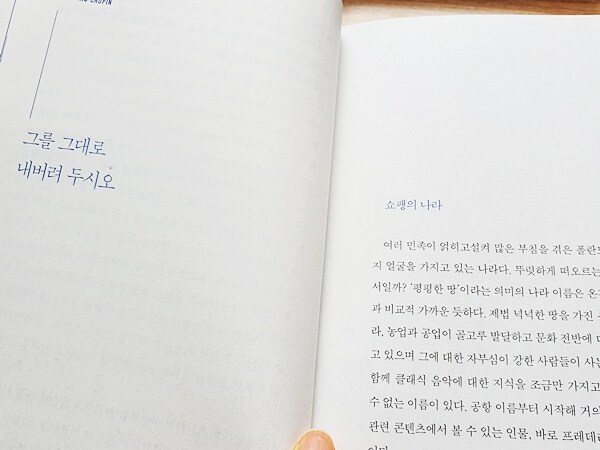 CHOPIN
그를 그대로
내버려 두시오
쇼팽의 나라
여러 민족이 얽히고설켜 많은 부침을 겪은
지 얼굴을 가지고 있는 나라다. 뚜렷하게 떠오르는
서일까? '평평한 땅'이라는 의미의 나라 이름은
과 비교적 가까운 듯하다. 제법 넉넉한 땅을 가진
라. 농업과 공업이 골고루 발달하고 문화 전반에
고 있으며 그에 대한 자부심이 강한 사람들이
함께 클래식 음악에 대한 지식을 조금만 가지고
수 없는 이름이 있다. 공항 이름부터 시작해 거의
관련 콘텐츠에서 볼 수 있는 인물, 바로